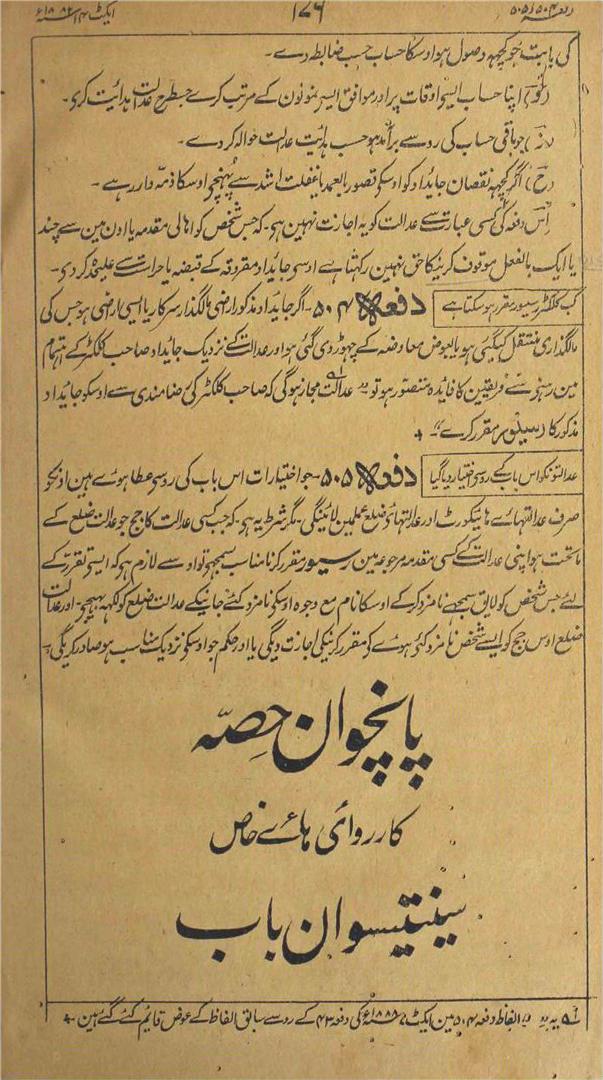 دفعہ ۵۰۴ و ۵۰۵
۱۷۶
ایکٹ ۱۴ ۱۸۸۲ء
کی بابت جو کچہہ وصول ہو اوسکا حساب حسب ضابطہ دے۔
(و) اپنا حساب ایسی اوقات پر اور موافق ایسے نمونون کے مرتب کرے جسطرح عدالت ہدایت کری۔
(ز) جو باقی حساب کی رو سے برآمد ہو حسب ہدایت عدالت حوالہ کر دے۔
(ح) اگر کچہہ نقصان جائداد کو اوسکو قصور بالعمد یا غفلت اشد سے پہنچے اوسکا ذمہ دار رہے۔
اس دفعہ کی کسی عبارت سے عدالت کو یہ اجازت نہین ہی۔ کہ جس شخص کو اہالی مقدمہ یا اون مین سے چند
یا ایک بالفعل موقوف کرنیکا حق نہین رکہتا ہے اوسی جائداد مقروقہ کے قبضہ یا حراست سے علیحدہ کر دی۔
کب کلکٹر رسیور مقرر ہو سکتا ہے
دفعہ ۵۰۴۔ اگر جائداد مذکور اراضی مالگذار سرکار یا ایسی اراضی ہو جس کی
مالگذاری منتقل کیگئی ہو یا بعوض معاوضہ کے چہوڑ دی گئی ہو اور عدالت کے نزدیک جائداد صاحب کلکٹر کے اہتمام
مین رہنی سے فریقین کا فائدہ متصور ہو تو عدالت مجاز ہوگی کہ صاحب کلکٹر کی رضامندی سے اوسکو جائداد
مذکور کا رسیور مقرر کرے“۔ +
عدالتونکو اس باب کے روسے اختیار دیا گیا
دفعہ ۵۰۵۔ جو اختیارات اس باب کی روسے عطا ہوے ہین اونکو
صرف عدالتہاے ہائیکورٹ اور عدالتہاے ضلع عمل مین لائینگی۔ مگر شرط یہ ہی۔ کہ جب کسی عدالت کا جج جو عدالت ضلع کے
ماتحت ہو اپنی عدالت کے کسی مقدمہ مرجوعہ مین رسیور مقرر کرنا مناسب سمجہے تو اوسے لازم ہی کہ ایسی تقرر کے
لئے جس شخص کو لایق سمجہے نامزد کرکے اوسکا نام مع وجوہ اوسکو نامزد کئے جانیکے عدالت ضلع کو لکہہ بہیجے۔ اور عدالت
ضلع اوس جج کو ایسے شخص نامزد کئے ہوے کو مقرر کرنیکی اجازت دیگی یا اور حکم جو اوسکو نزدیک مناسب ہو صادر کریگی۔
پانچوان حصہ
کارروائی ہاے خاص
سینتیسوان باب
یہ الفاظ دفعہ ۵۰۴ مین ایکٹ ۷ ۱۸۸۸ء کی دفعہ ۴۳ کے رو سے سابق الفاظ کے عوض قایم کئے گئے ہین +